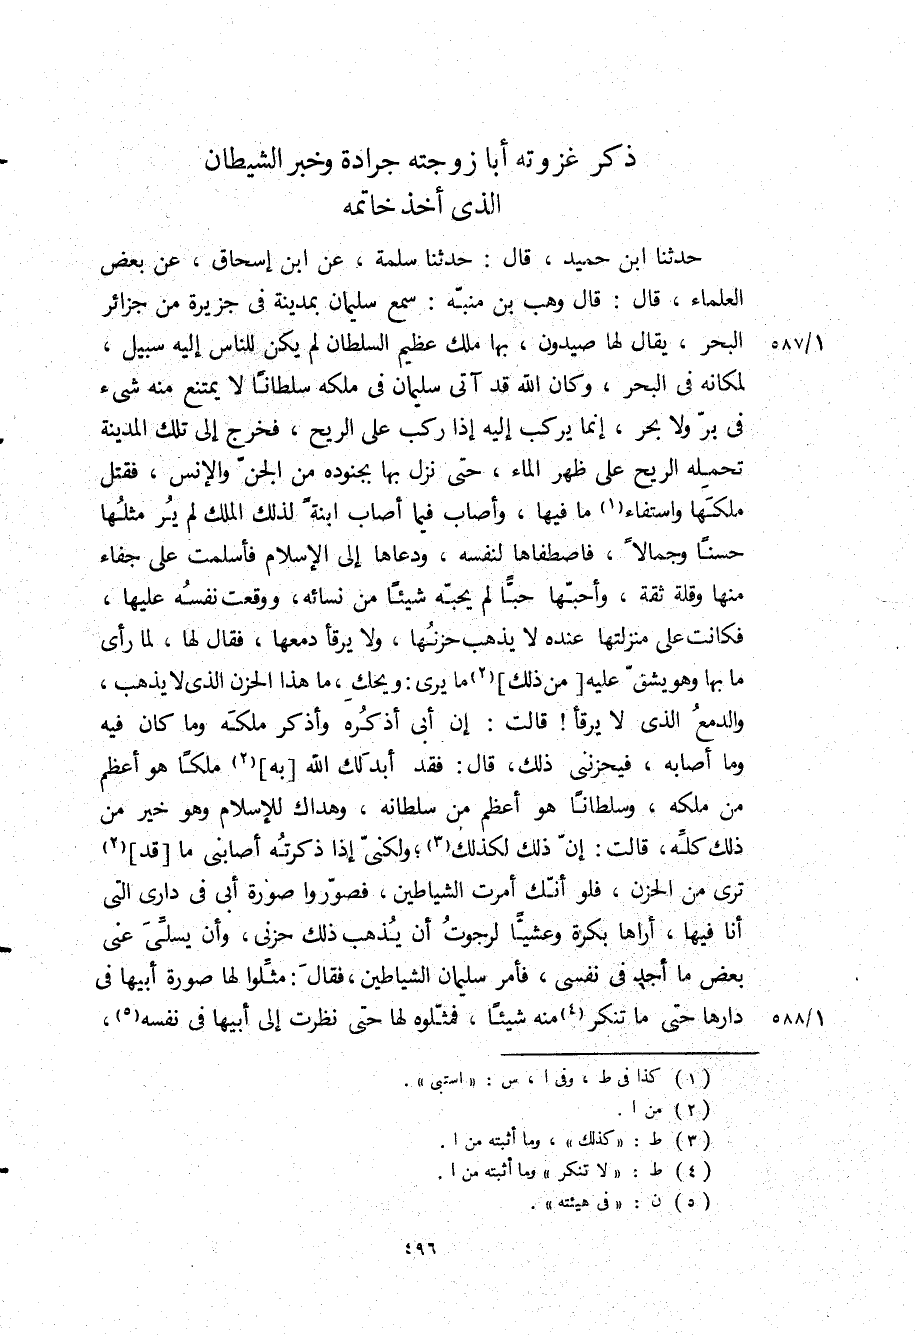 ذكر غزوته أبا زوجته جرادة وخبر الشيطان
الذى أخذ خاتمه
حدثنا ابن حميد ، قال : حدثنا سلمة ، عن ابن إسحاق ، عن بعض
العلماء ، قال : قال وهب بن منبّه : سمع سليمان بمدينة فى جزيرة من جزائر
البحر ، يقال لها صيدون ، بها ملك عظيم السلطان لم يكن للناس إليه سبيل ، ٥٨٧/١
لمكانه فى البحر ، وكان الله قد آتى سليمان فى ملكه سلطانًا لا يمتنع منه شىء
فى برّ ولا بحر ، إنما يركب إليه إذا ركب على الريح ، فخرج إلى تلك المدينة
تحمله الريح على ظهر الماء ، حتى نزل بها بجنوده من الجنّ والإنس ، فقتل
ملكَها واستفاء(١) ما فيها ، وأصاب فيما أصاب ابنةً لذلك الملك لم يُر مثلُها
حسنًا وجمالاً ، فاصطفاها لنفسه ، ودعاها إلى الإسلام فأسلمت على جفاء
منها وقلة ثقة ، وأحبّها حبًّا لم يحبّه شيئًا من نسائه، ووقعت نفسُه عليها ،
فكانت على منزلتها عنده لا يذهب حزنُها ، ولا يرقأ دمعها ، فقال لها ، لما رأى
ما بها وهو يشقّ عليه [ من ذلك](٢) ما يرى : ويحكِ ، ما هذا الحزن الذى لا يذهب ،
والدمعُ الذى لا يرقأ ! قالت : إن أبى أذكُره وأذكر ملكَه وما كان فيه
وما أصابه ، فيحزننى ذلك، قال : فقد أبدلك الله [به](٢) ملكًا هو أعظم
من ملكه ، وسلطانًا هو أعظم من سلطانه ، وهداك للإسلام وهو خير من
ذلك كلِّه، قالت : إنّ ذلك لكذلك(٣) ؛ ولكنىّ إذا ذكرتُه أصابنى ما [قد](٢)
ترى من الحزن ، فلو أنّك أمرت الشياطين ، فصوّروا صورة أبى فى دارى التى
أنا فيها ، أراها بكرة وعشيًّا لرجوتُ أن يُذهب ذلك حزنى، وأن يسلِّىَ عنى
بعض ما أجد فى نفسى ، فأمر سليمان الشياطين، فقالَ : مثِّلوا لها صورة أبيها فى
دارها حتى ما تنكر (٤) منه شيئًا ، فمثّلوه لها حتى نظرت إلى أبيها فى نفسه(٥) ، ٥٨٨/١
(١) كذا فى ط ، وفى ا ، س : « استبى » .
(٢) من ا .
(٣) ط : « كذلك » ، وما أثبته من ا .
(٤) ط : « لا تنكر » وما أثبته من ا .
(٥) ن : « فى هيئته » .
٤٩٦